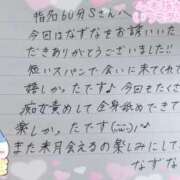 指名60分Sさんへ
今回はなずなをお誘いいた
だきありがとうございました!!
短いスパンで会いに来てくれて
嬉しかったですよ今回もたくさん
痴で責めして全身舐めできて
楽しかったです(;ω;)
また来月会えるの楽しみにして
なずな